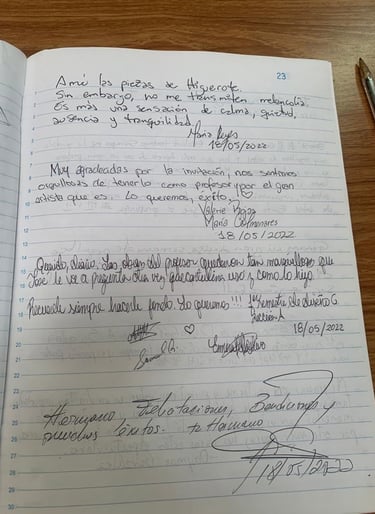 23
Amé las piezas de Higuerote.
Sin embargo, no me transmiten melancolía.
Es más una sensación de calma, quietud,
ausencia y tranquilidad.
María Reyes
18/05/2022
Muy agradecidas por la invitación, nos sentimos
orgullosas de tenerlo como profesor y por el gran
artista que es. Lo queremos, éxito. ♡
Valerie Rojas
María Colmenares
18/05/2022
Querido, diario. Las obras del profesor quedaron tan maravillosas que
José le va a preguntar otra vez que cartulina usó y como lo hizo.
Recuerde siempre hacerle fondo. Lo queremos!!! 1º Semestre de diseño G
Sección A
♡ 18/05/2022
Samuel G.
Hermano Felicitaciones, Bendiciones y
muchos Éxitos. tu Hermano
18/05/2022